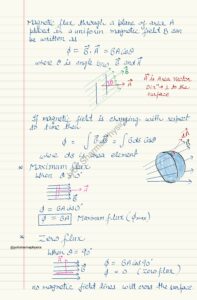 Magnetic flux through a plane of area A
placed in a uniform magnetic field B can
be written as
ϕ = B⃗ . A⃗ = BA cos θ
where θ is angle b/w B⃗ and A⃗
A⃗ is Area vector
Dirⁿ → ⊥ to the
surface
If magnetic field is changing with respect
to time then
ϕ = ∫ B⃗ . ds⃗ = ∫ B ds cos θ
where ds is area element
Maximum flux
When θ = 0°
ϕ = BA cos 0°
ϕ = BA Maximum flux (ϕmax)
Zero flux
When θ = 90°
ϕ = BA cos 90°
ϕ = 0 (zero flux)
no magnetic field lines will cross the surface